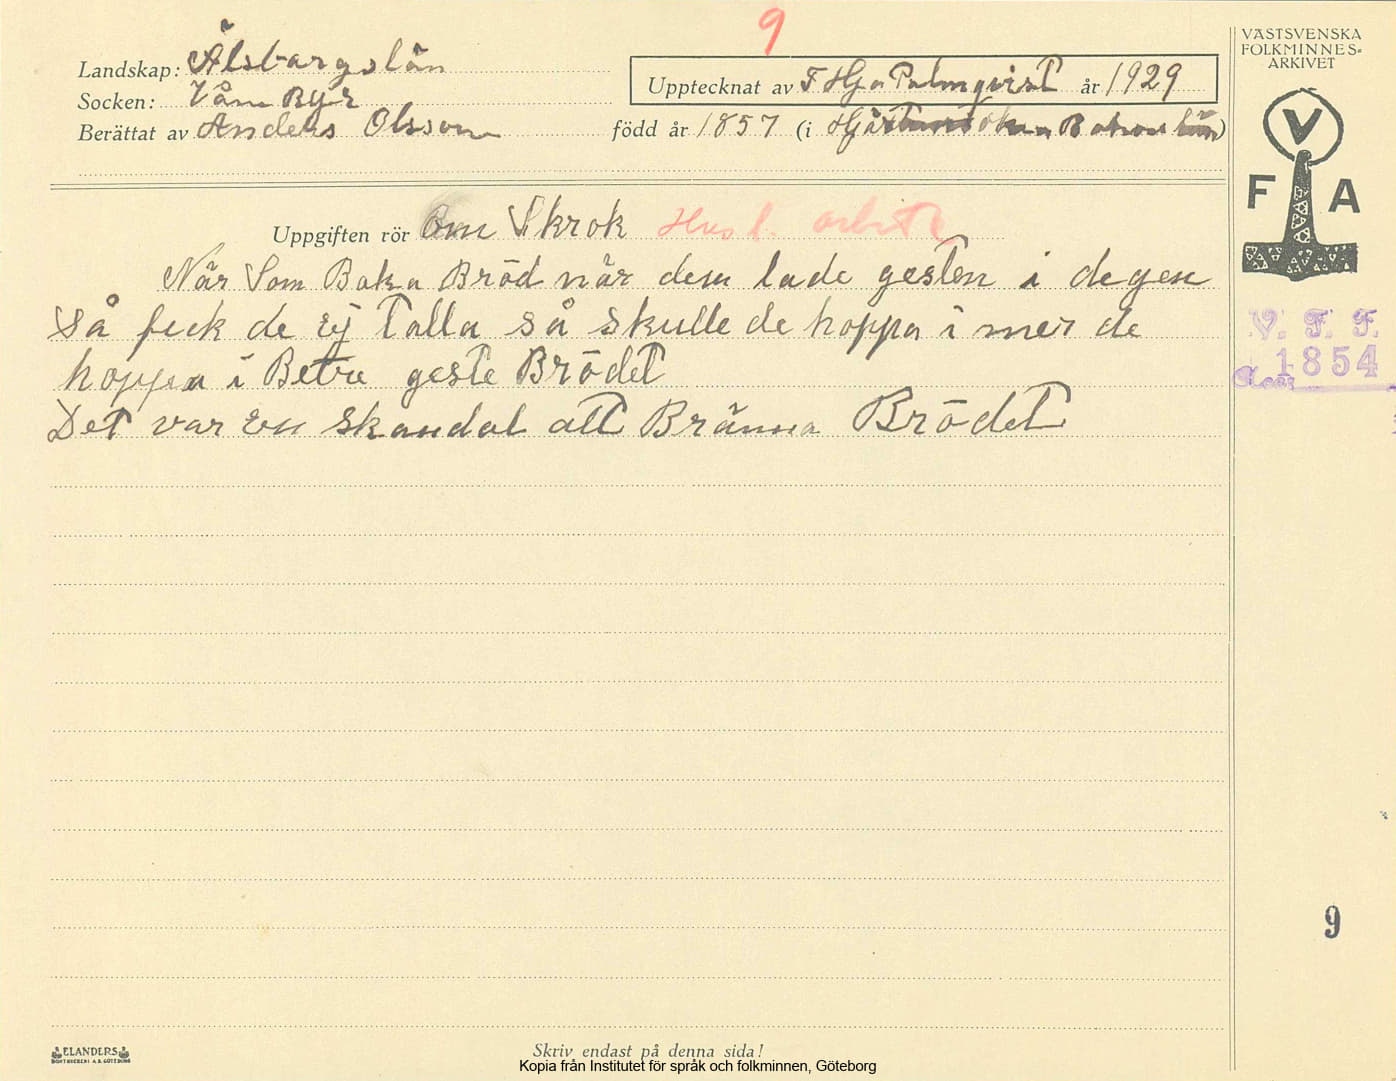 9
VÄSTSVENSKA
FOLKMINNES-
ARKIVET
Landskap: Älsbargslän
Upptecknat av F Hja Palmqvist år 1929
Socken: Våne Ryr
Berättat av Anders Olsson född år 1857 (i Bohus län)
V
F A
Uppgiften rör Om Skrok Husl. arbete
När Som Baka Bröd när dem lade gesten i degen
Så feck de Ej Talla så skulle de hoppa i mer de
hoppa i Betre geste Brödet
Det var En skandal att Bränna Brödet
V. F. F.
1854
9
ELANDERS
BOKTRYCKERI A.B. GÖTEBORG
Skriv endast på denna sida!
Kopia från Institutet för språk och folkminnen, Göteborg